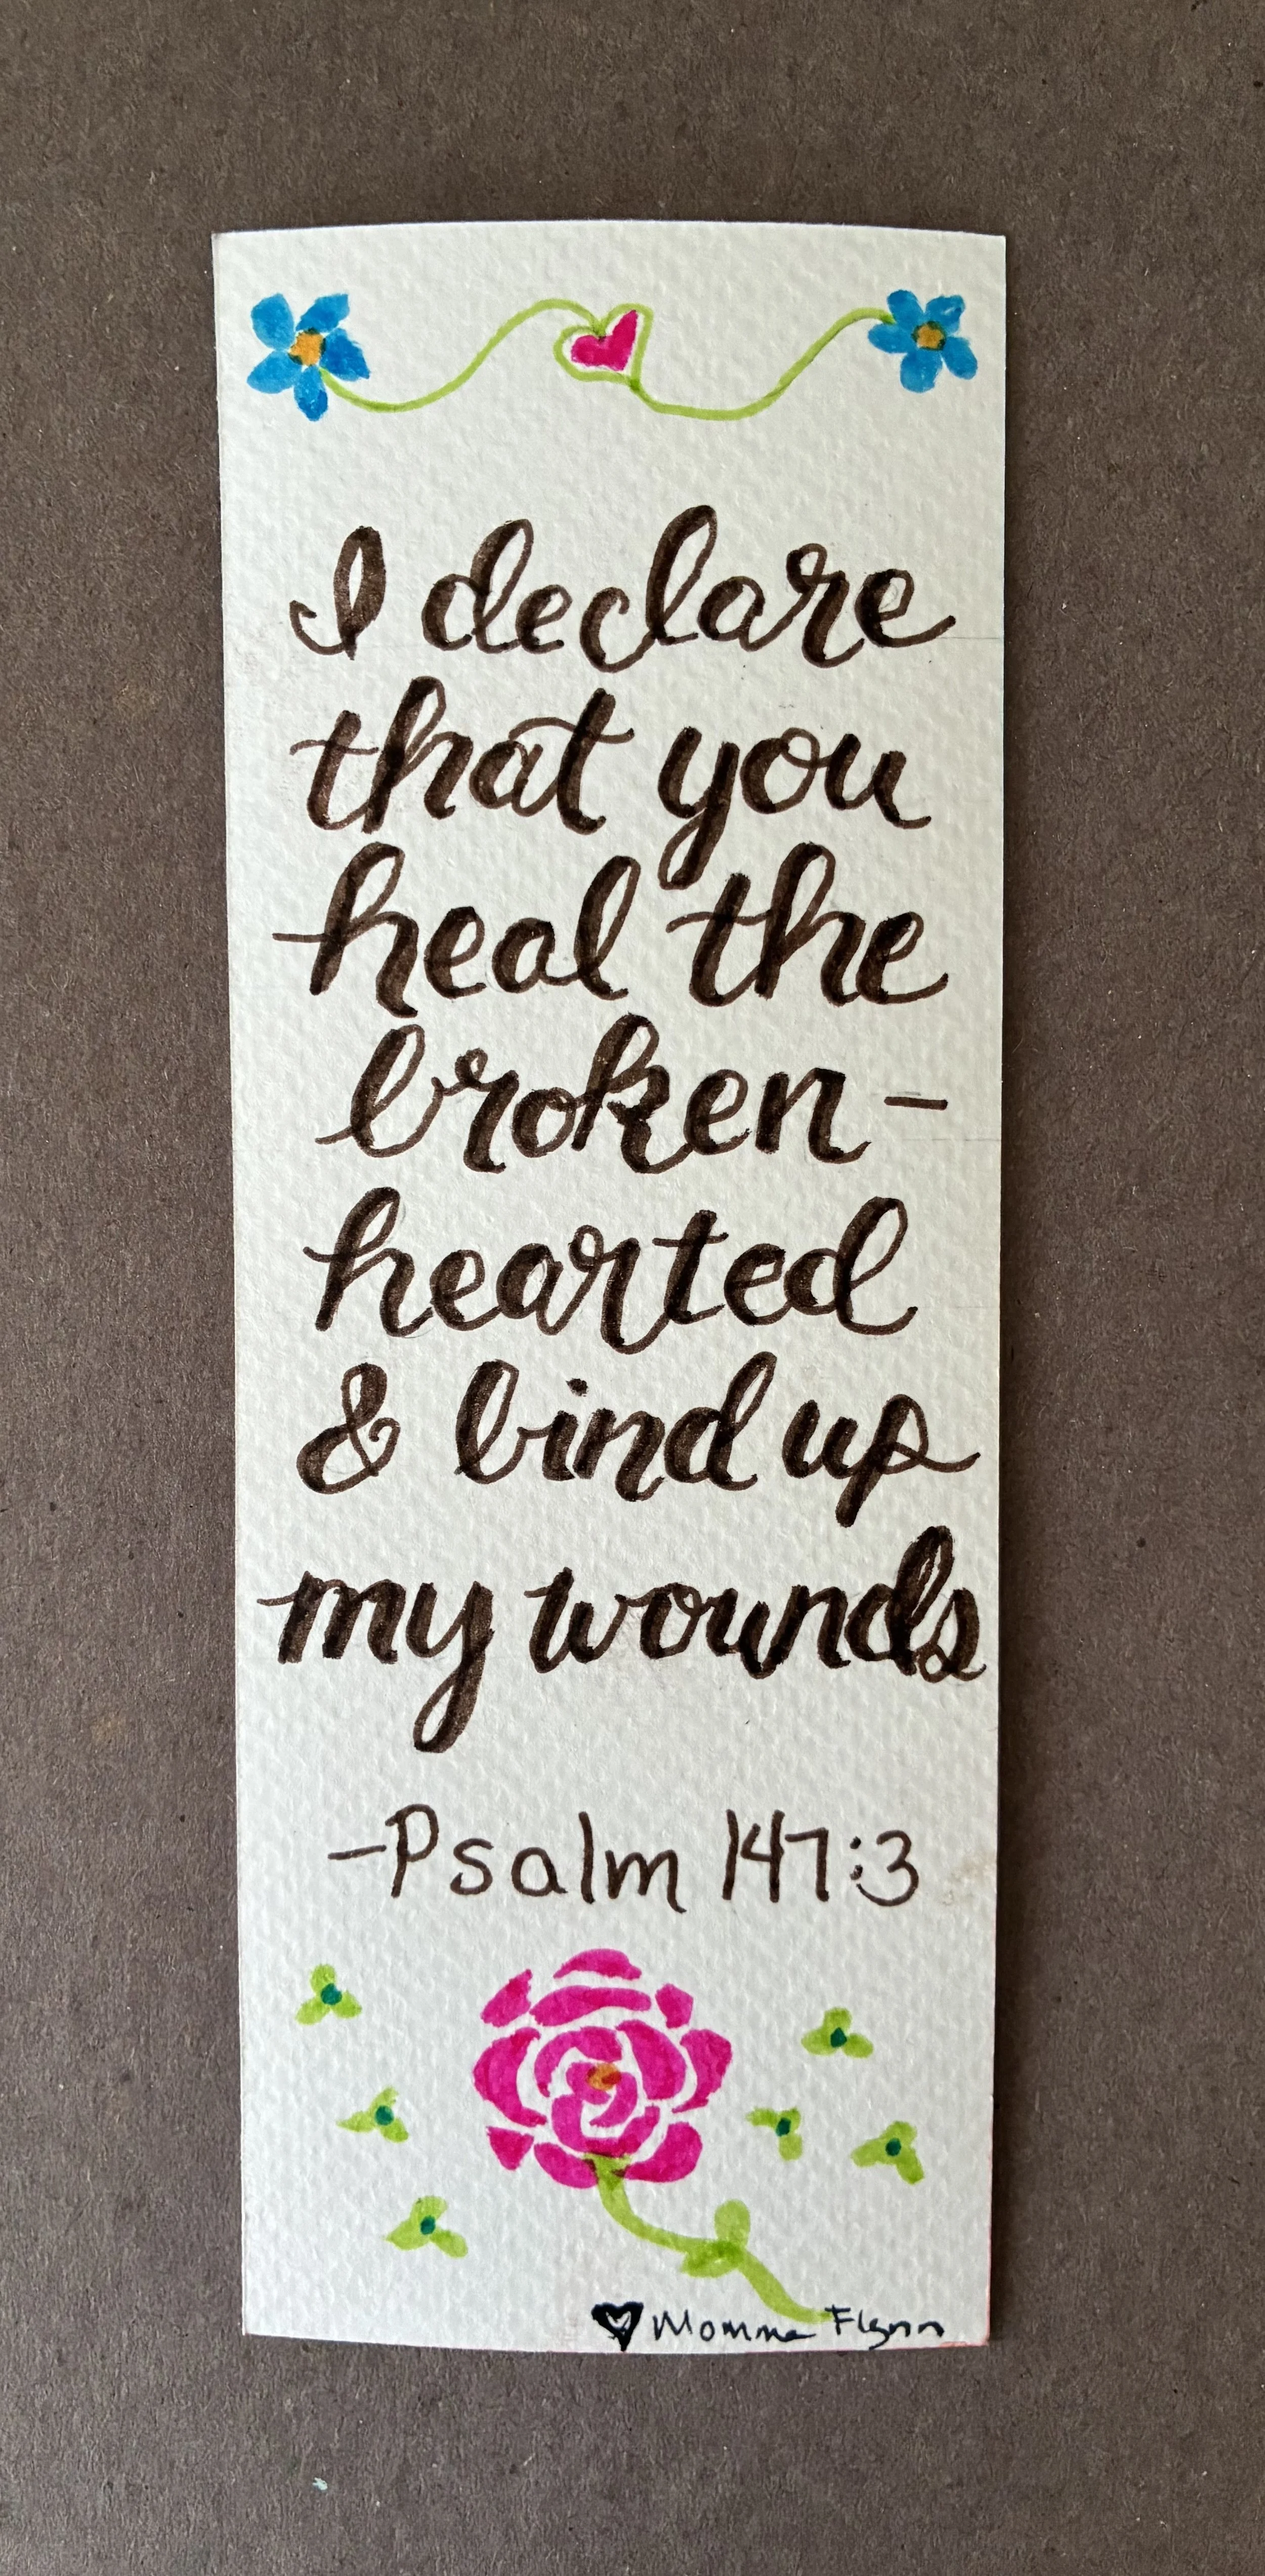 I declare
that you
heal the
broken-
hearted
& bind up
my wounds
-Psalm 147:3
Momma Flynn